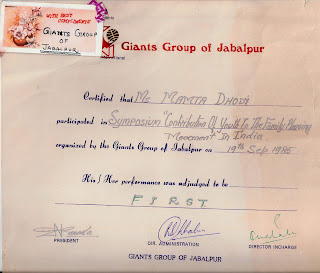 WITH BEST COMPLIMENTS
GIANTS GROUP
OF
JABALPUR
Giants Group of Jabalpur
Certified that Ms MAMTA DHODI
participated in Symposium "Contribution Of Youth To The Family Planning
Movement" In India
organized by the Giants Group of Jabalpur on 19th Sep 1985
His / Her performance was adjudged to be
FIRST
PRESIDENT
DIR. ADMINISTRATION
DIRECTOR INCHARGE
GIANTS GROUP OF JABALPUR